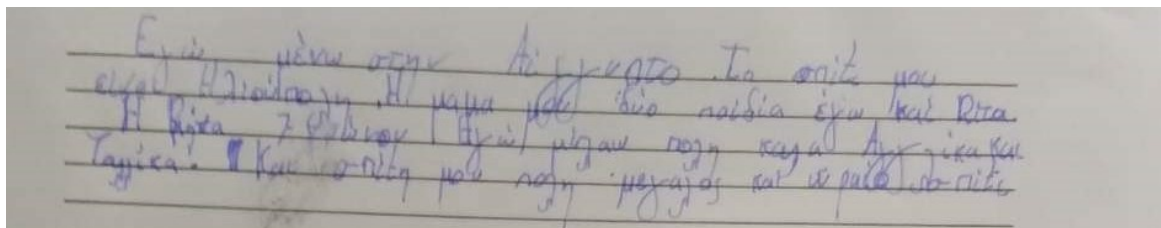 Εγώ μένω στην Αίγυπτο. Το σπίτι μου
είναι Ηλιούπολη. Η μαμα μου δύο παιδία έγω και Rita.
Η 7 Εγώ μίλαω πολη καλα Αγγλικα και
Γαλλικα. Και σπίτη μου πολη μεγαλος και ώραίο σπίτι